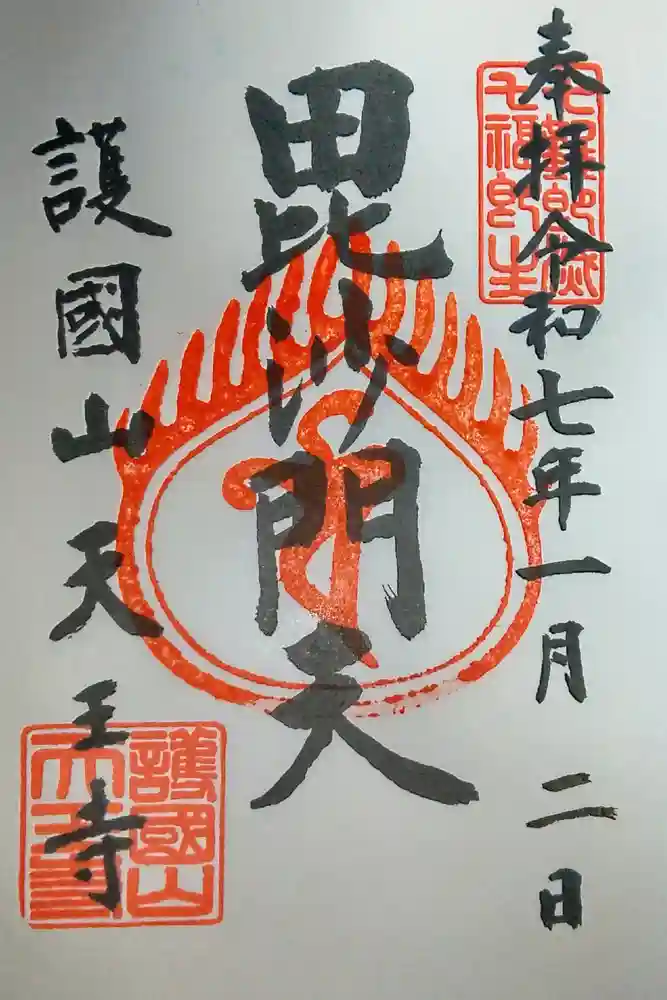 奉拝令和七年一月二日
七難即滅
七福即生
毘沙門天
護國山天王寺
護國山
天王寺